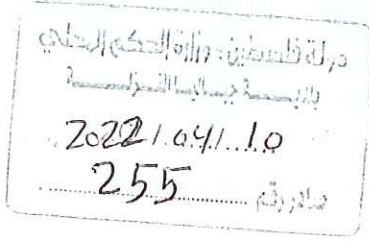 دولة فلسطين - وزارة الحكم المحلي
2022/04/10
صادر رقم 255